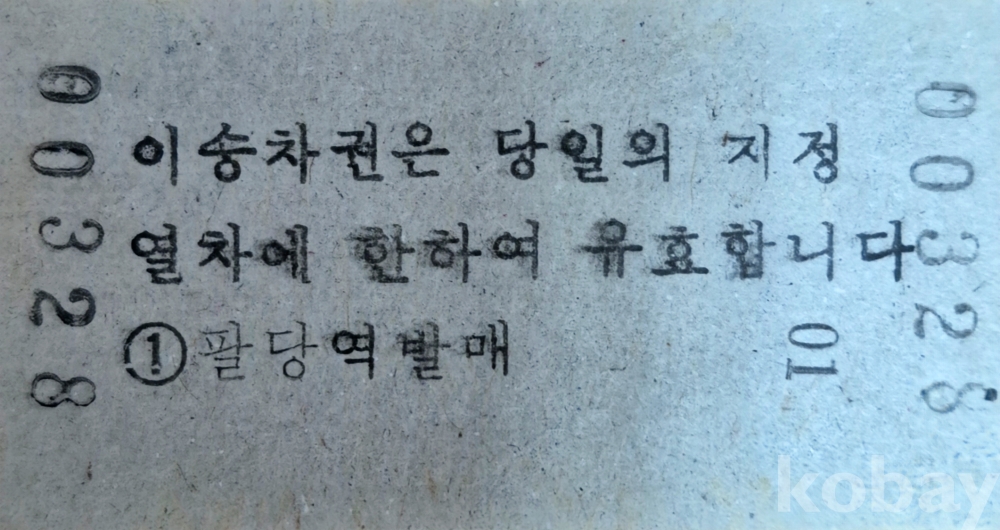 00328
이송차권은 당일의 지정
열차에 한하여 유효합니다
① 팔당역발매
01
00328
kobay